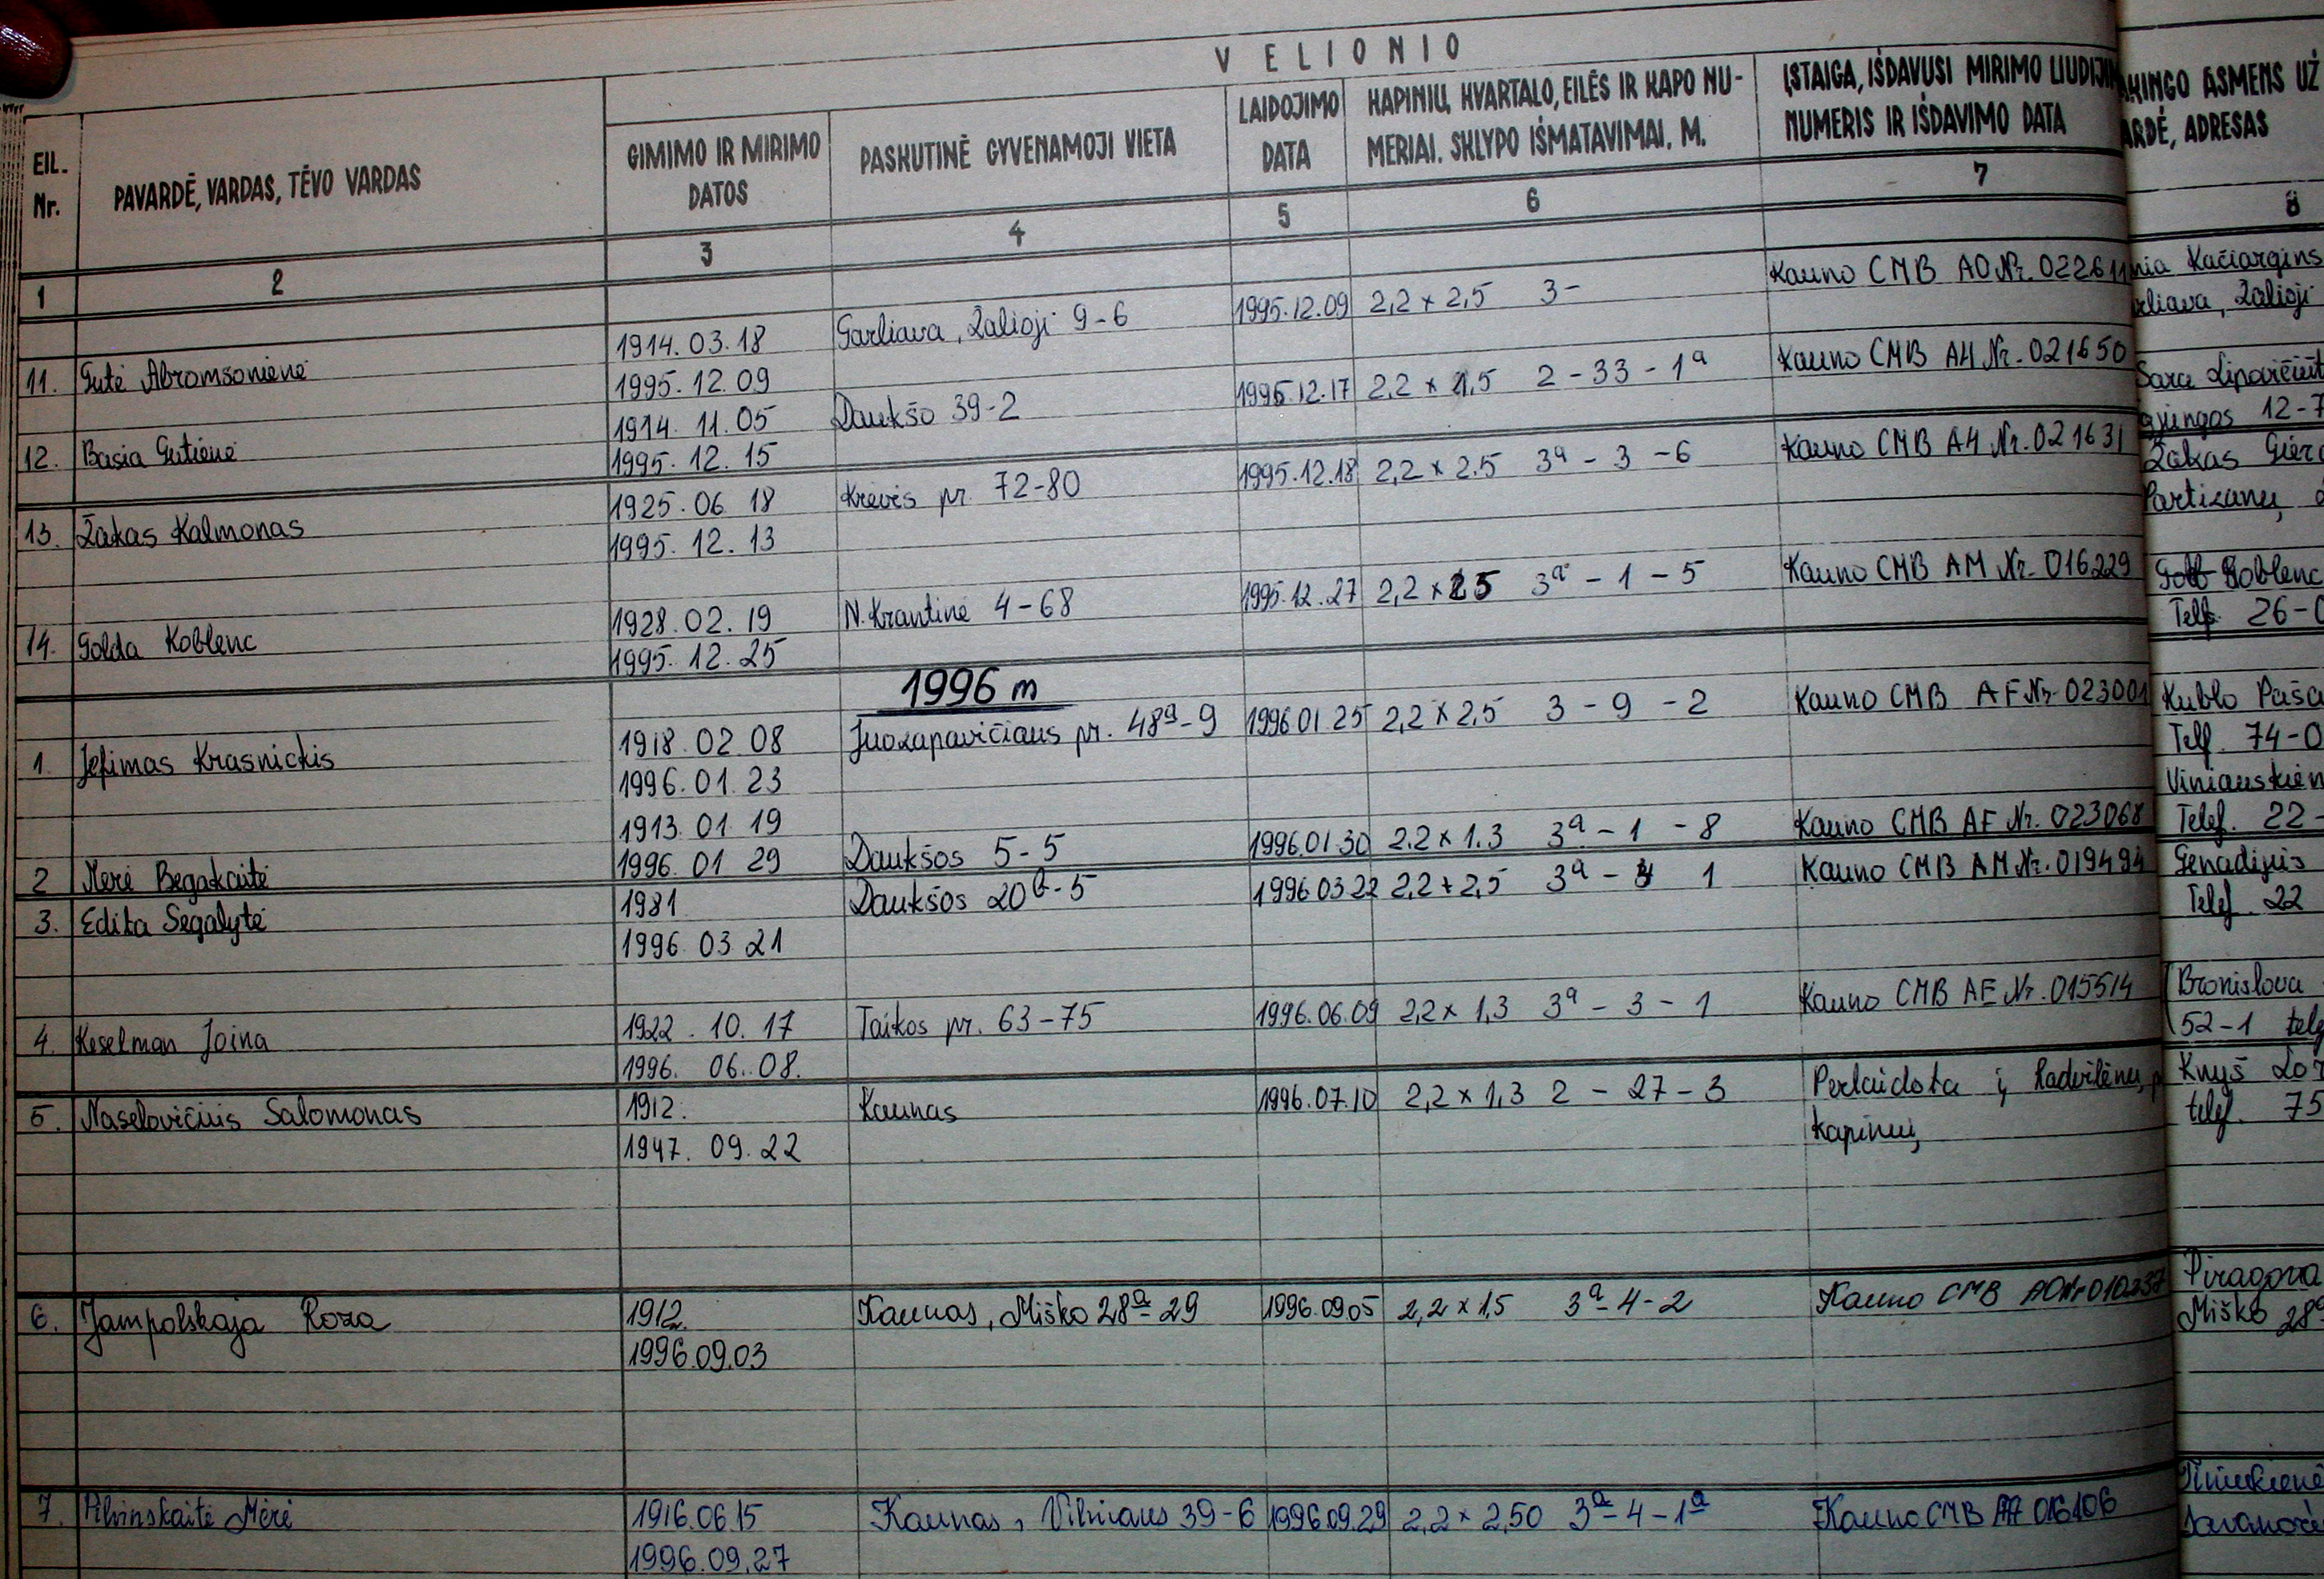 VELIONIO
EIL. Nr.
PAVARDĖ, VARDAS, TĖVO VARDAS
GIMIMO IR MIRIMO DATOS
PASKUTINĖ GYVENAMOJI VIETA
LAIDOJIMO DATA
KAPINIŲ, KVARTALO, EILĖS IR KAPO NU-
MERIAI. SKLYPO IŠMATAVIMAI. M.
ĮSTAIGA, IŠDAVUSI MIRIMO LIUDIJIM
NUMERIS IR IŠDAVIMO DATA
KINGO ASMENS UŽ
ARDĖ, ADRESAS
1 2 3 4 5 6 7 8
11. Gutė Abromsonienė 1914.03.18 Garliava, Žalioji 9-6 1995.12.09 2,2 x 2,5 3- Kauno CMB AO Nr. 022611 nia Kačiargins
1995.12.09 rliava, Žalioji
12. Basia Gutienė 1914.11.05 Daukšo 39-2 1995.12.17 2,2 x 1,5 2-33-1a Kauno CMB AH Nr. 021650 Sara
1995.12.15 12-7
13. Žakas Kalmonas 1925.06 18 Krėvės pr. 72-80 1995.12.18 2,2 x 2.5 3a-3-6 Kauno CMB AH Nr. 021631 Žakas
1995.12.13 Partizanų,
14. Golda Koblenc 1928.02.19 N.Krantinė 4-68 1995.12.27 2,2 x 2 5 3a-1-5 Kauno CMB AM Nr. 016229 Koblenc
1995.12.25 Telf. 26-
1996 m
1. Jefimas Krasnickis 1918.02 08 Juozapavičiaus pr. 48a-9 1996 01 25 2,2 x 2,5 3-9-2 Kauno CMB AF Nr. 023001 Kublo Paša
1996.01.23 Telf. 74-0
1913.01 19 Viniauskien
2 Merė Begakaitė 1996.01 29 Daukšos 5-5 1996.01.30 2.2 x 1.3 3a-1-8 Kauno CMB AF Nr. 023068 Telef. 22-
3. Edita Segalytė 1981 Daukšos 20b-5 1996 03 22 2,2 x 2,5 3a- 1 Kauno CMB AM Nr. 019494 Genadijus
1996.03 21 Telef. 22
4. Keselman Joina 1922.10.17 Taikos pr. 63-75 1996.06.09 2,2 x 1,3 3a-3-1 Kauno CMB AE Nr. 015514 Bronislova
1996. 06.08. 52-1 telef
5. Naselovičius Salomonas 1912. Kaunas 1996.07.10 2,2 x 1,3 2-27-3 Perlaidota į Radvilėnų p Knyš
1947.09.22 kapinių telef. 75
6. Jampolskaja Roza 1912. Kaunas, Miško 28a-29 1996.09.05 2,2 x 1,5 3a-4-2 Kauno CMB AO Nr 010237 Piragova
1996.09.03 Miško 28a
7. Pilvinskaitė Mėrė 1916.06.15 Kaunas, Vilniaus 39-6 1996.09.29 2,2 x 2,50 3a-4-1a Kauno CMB 016106
1996.09.27